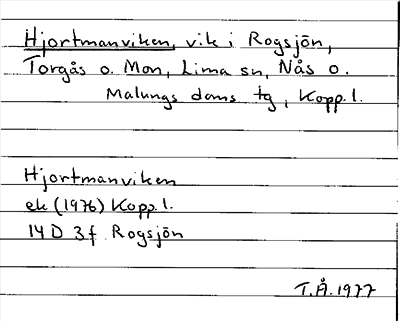 Hjortmanviken, vik i Rogsjön,
Torgås o. Mon, Lima sn, Nås o.
Malungs doms tg, Kopp.l.
Hjortmanviken
ek (1976) Kopp.l.
14D 3f Rogsjön
T.Å.1977